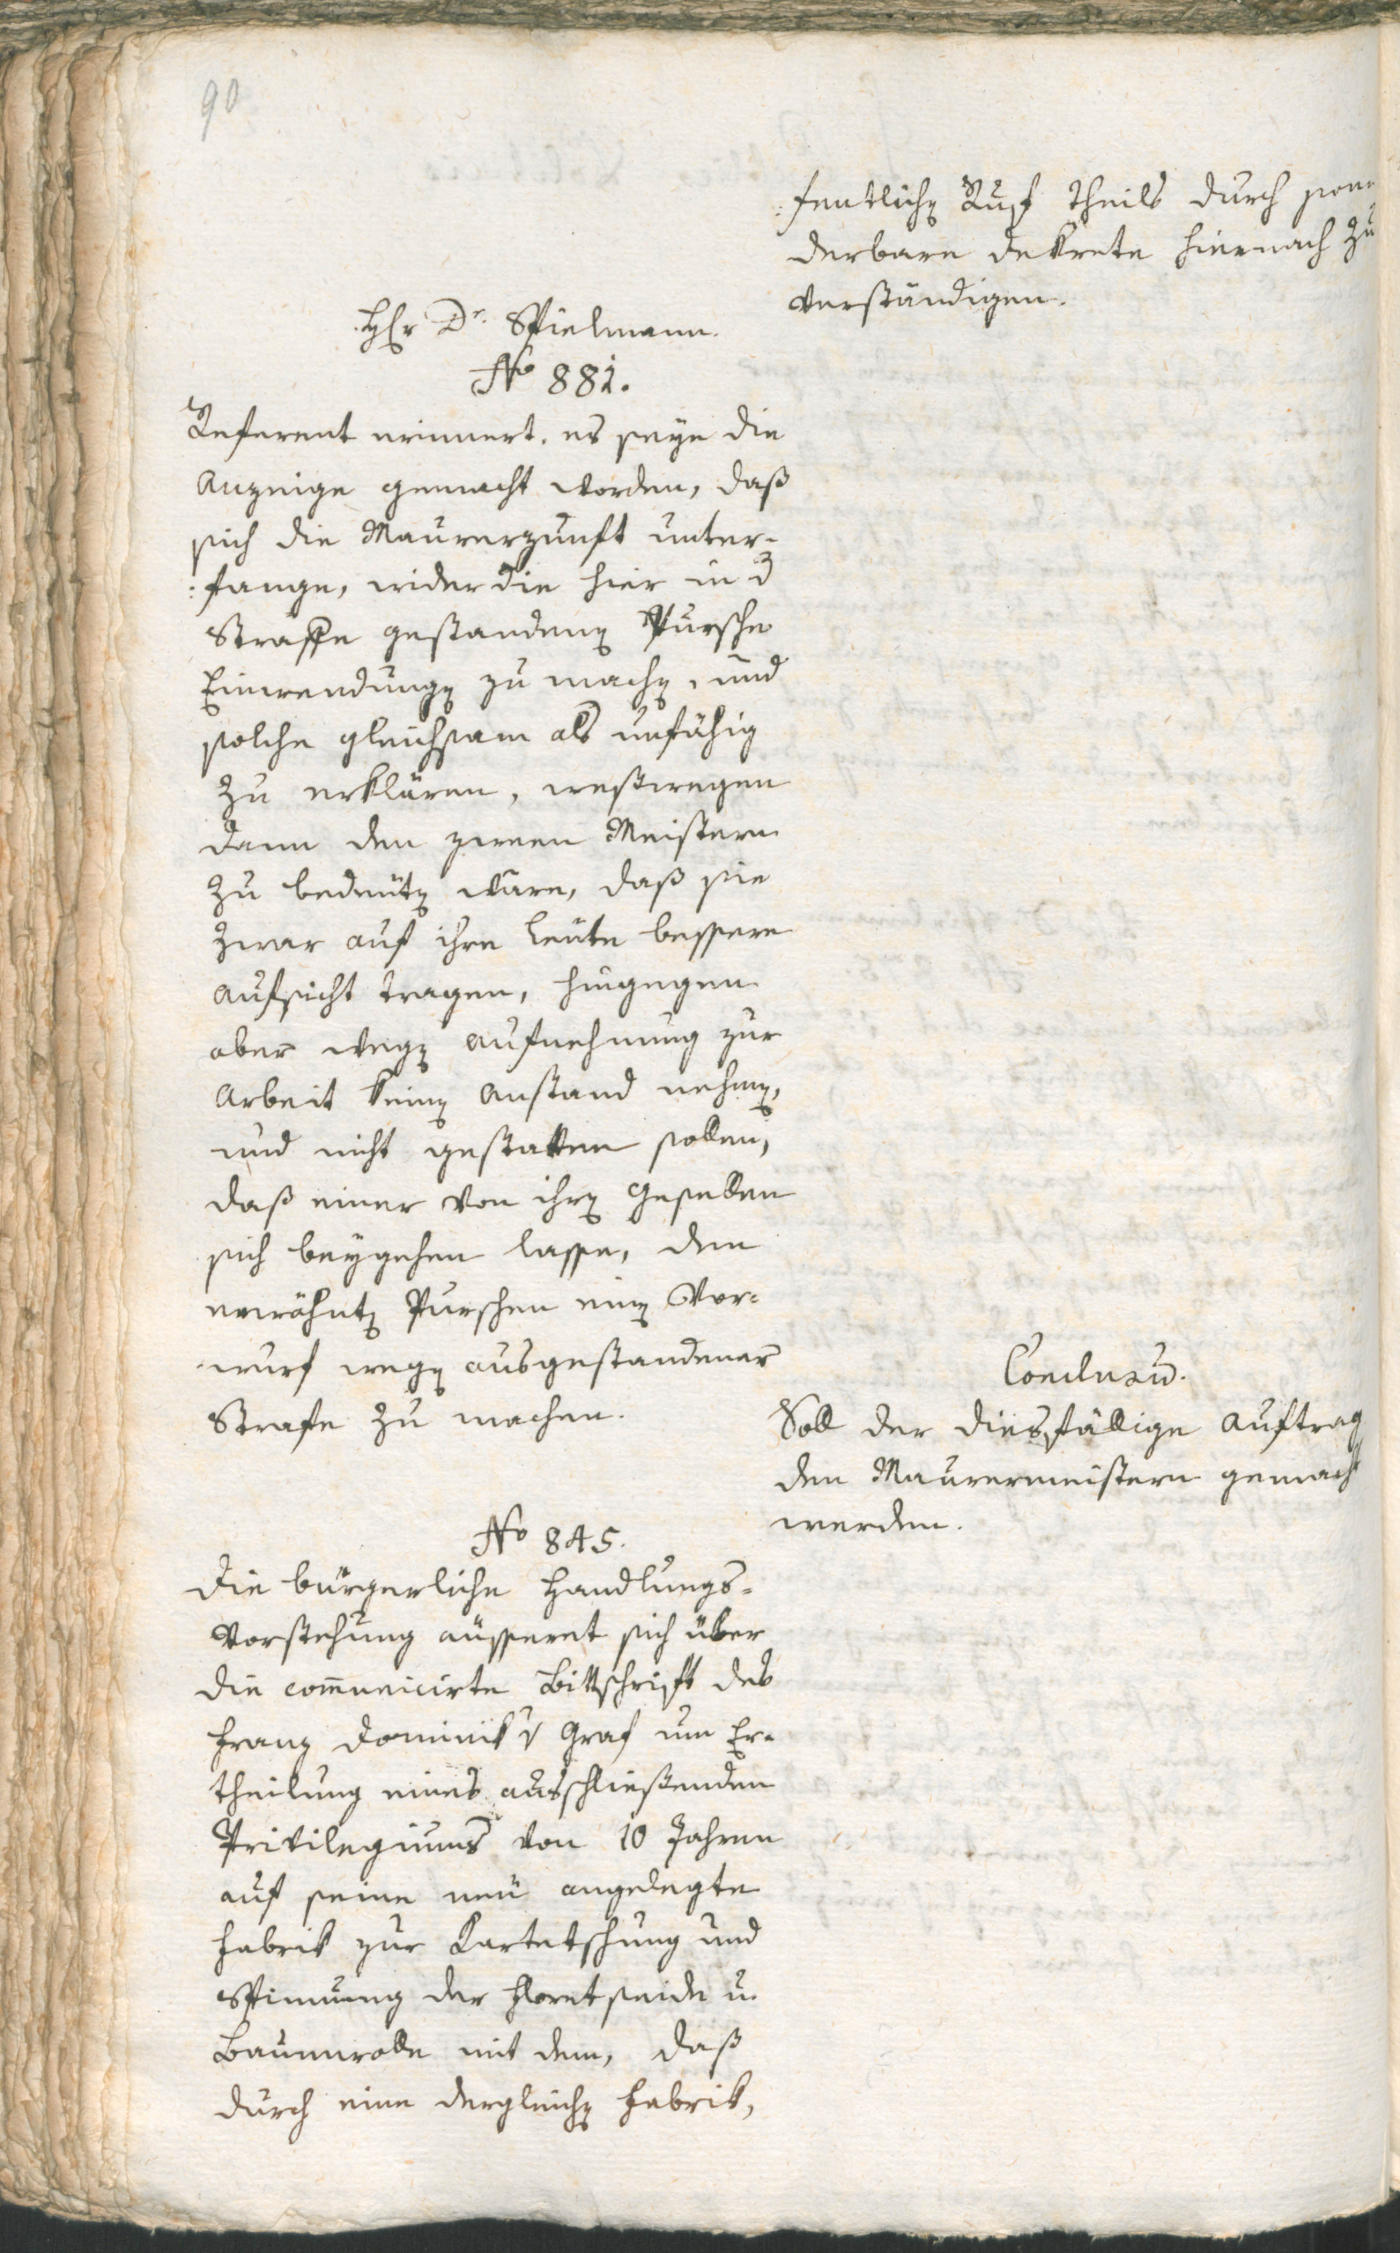 90
:fentlichen Ruf theils durch son
derbare Dekrete hiernach zu
verständigen.
Hr Dr. Spielmann.
No 881.
Referent erinnert, es seye die
Anzeige gemacht worden, daß
sich die Maurerzunft unter-
:fange, wider die hier in d
Strasse gestandenen Pursche
Einwendungen zu machen, und
solche gleichsam als unfähig
zu erklären, weßwegen
dann den zween Meistern
zu bedeuten wäre, daß sie
zwar auf ihre Leute bessere
Aufsicht tragen, hingegen
aber wegen Aufnehmung zur
Arbeit keinen Anstand nehmen,
und nicht gestatten sollen,
daß einer von ihren Gesellen
sich beygehen lasse, den
erwähnten Purschen einen Vor-
wurf wegen ausgestandener
Strafe zu machen.
Conclusum.
Soll der diesfällige Auftrag
den Maurermeistern gemacht
werden.
No 845.
Die bürgerliche Handlungs-
Vorstehung äusseret sich über
die communicirte Bittschrift des
Franz Dominik v Graf um Er-
theilung eines ausschließenden
Privilegiums von 10 Jahren
auf seine neu angelegte
Fabrik zur Kartetschung und
Spinnung der Floretseide u.
Baumwolle mit dem, daß
durch eine dergleichen Fabrik,